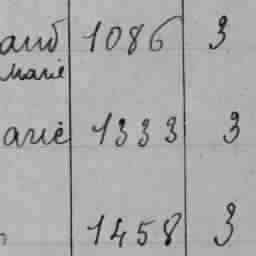 and 1086 3
Marie
arie 1333 3
1458 3